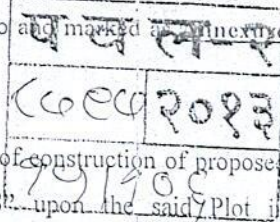 o and marked as Annexure
प व ल - २
२०१३
of construction of propose
upon the said Plot i